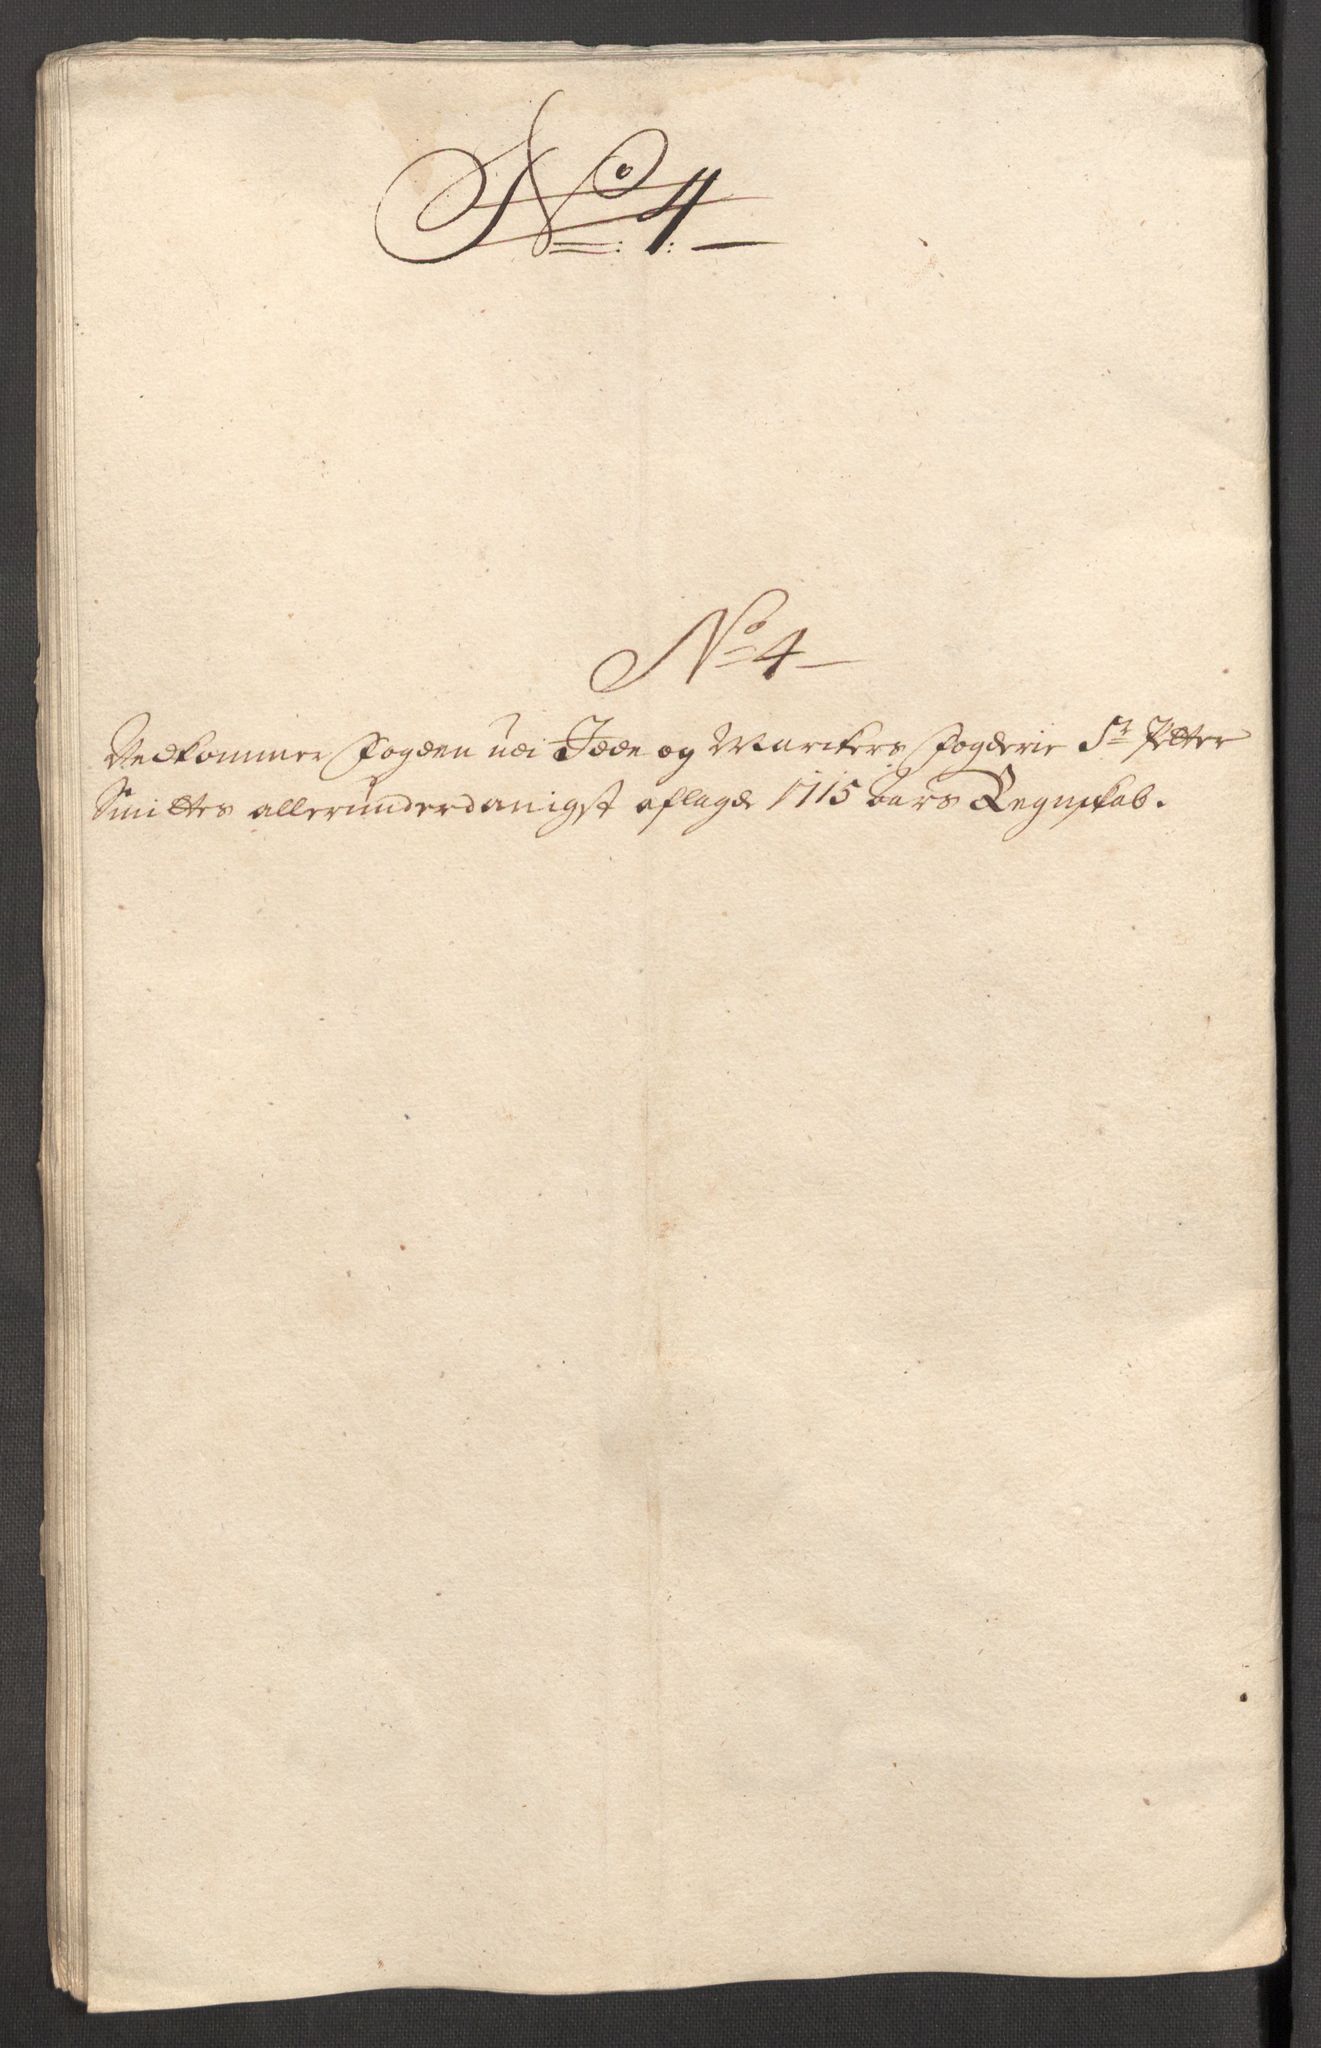 No 4
No 4
Vedkommer Fogden udi Idde og Marckers Fogderie Sr Petter
Smittes allerunderdanigst aflagde 1715 Aars Regnskab.